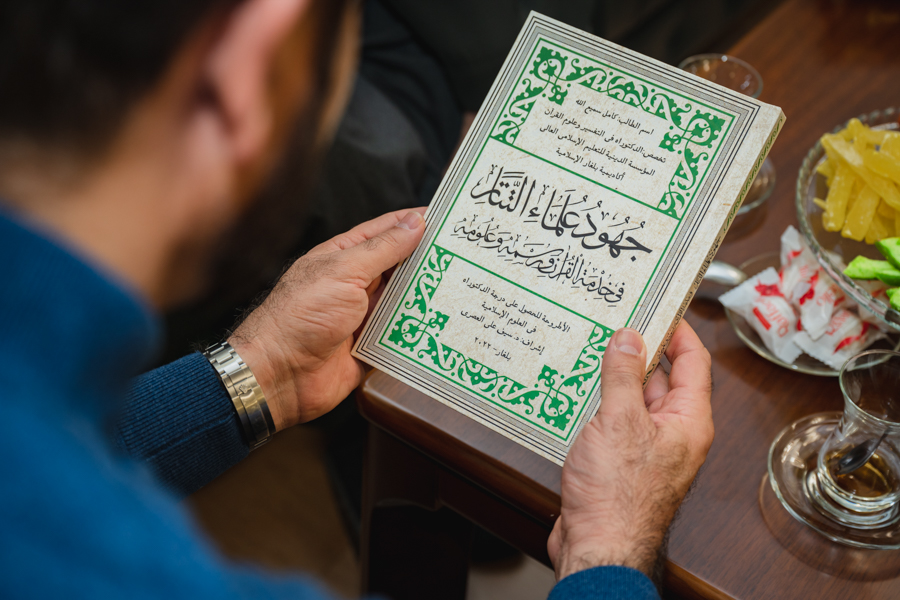 اسم الطالب: كامل سميع الله
تخصص: الدكتوراه في التفسير وعلوم القرآن
المؤسسة الدينية للتعليم الإسلامي العالي
أكاديمية بلغار الإسلامية
جُهُودُ عُلَمَاءِ التَّتَار
فِي خِدْمَةِ الْقُرْآنِ وَرَسْمِهِ وَعُلُومِهِ
الأطروحة للحصول على درجة الدكتوراه
في العلوم الإسلامية
إشراف: د. سيف علي العصري
بلغار - ٢٠٢٢